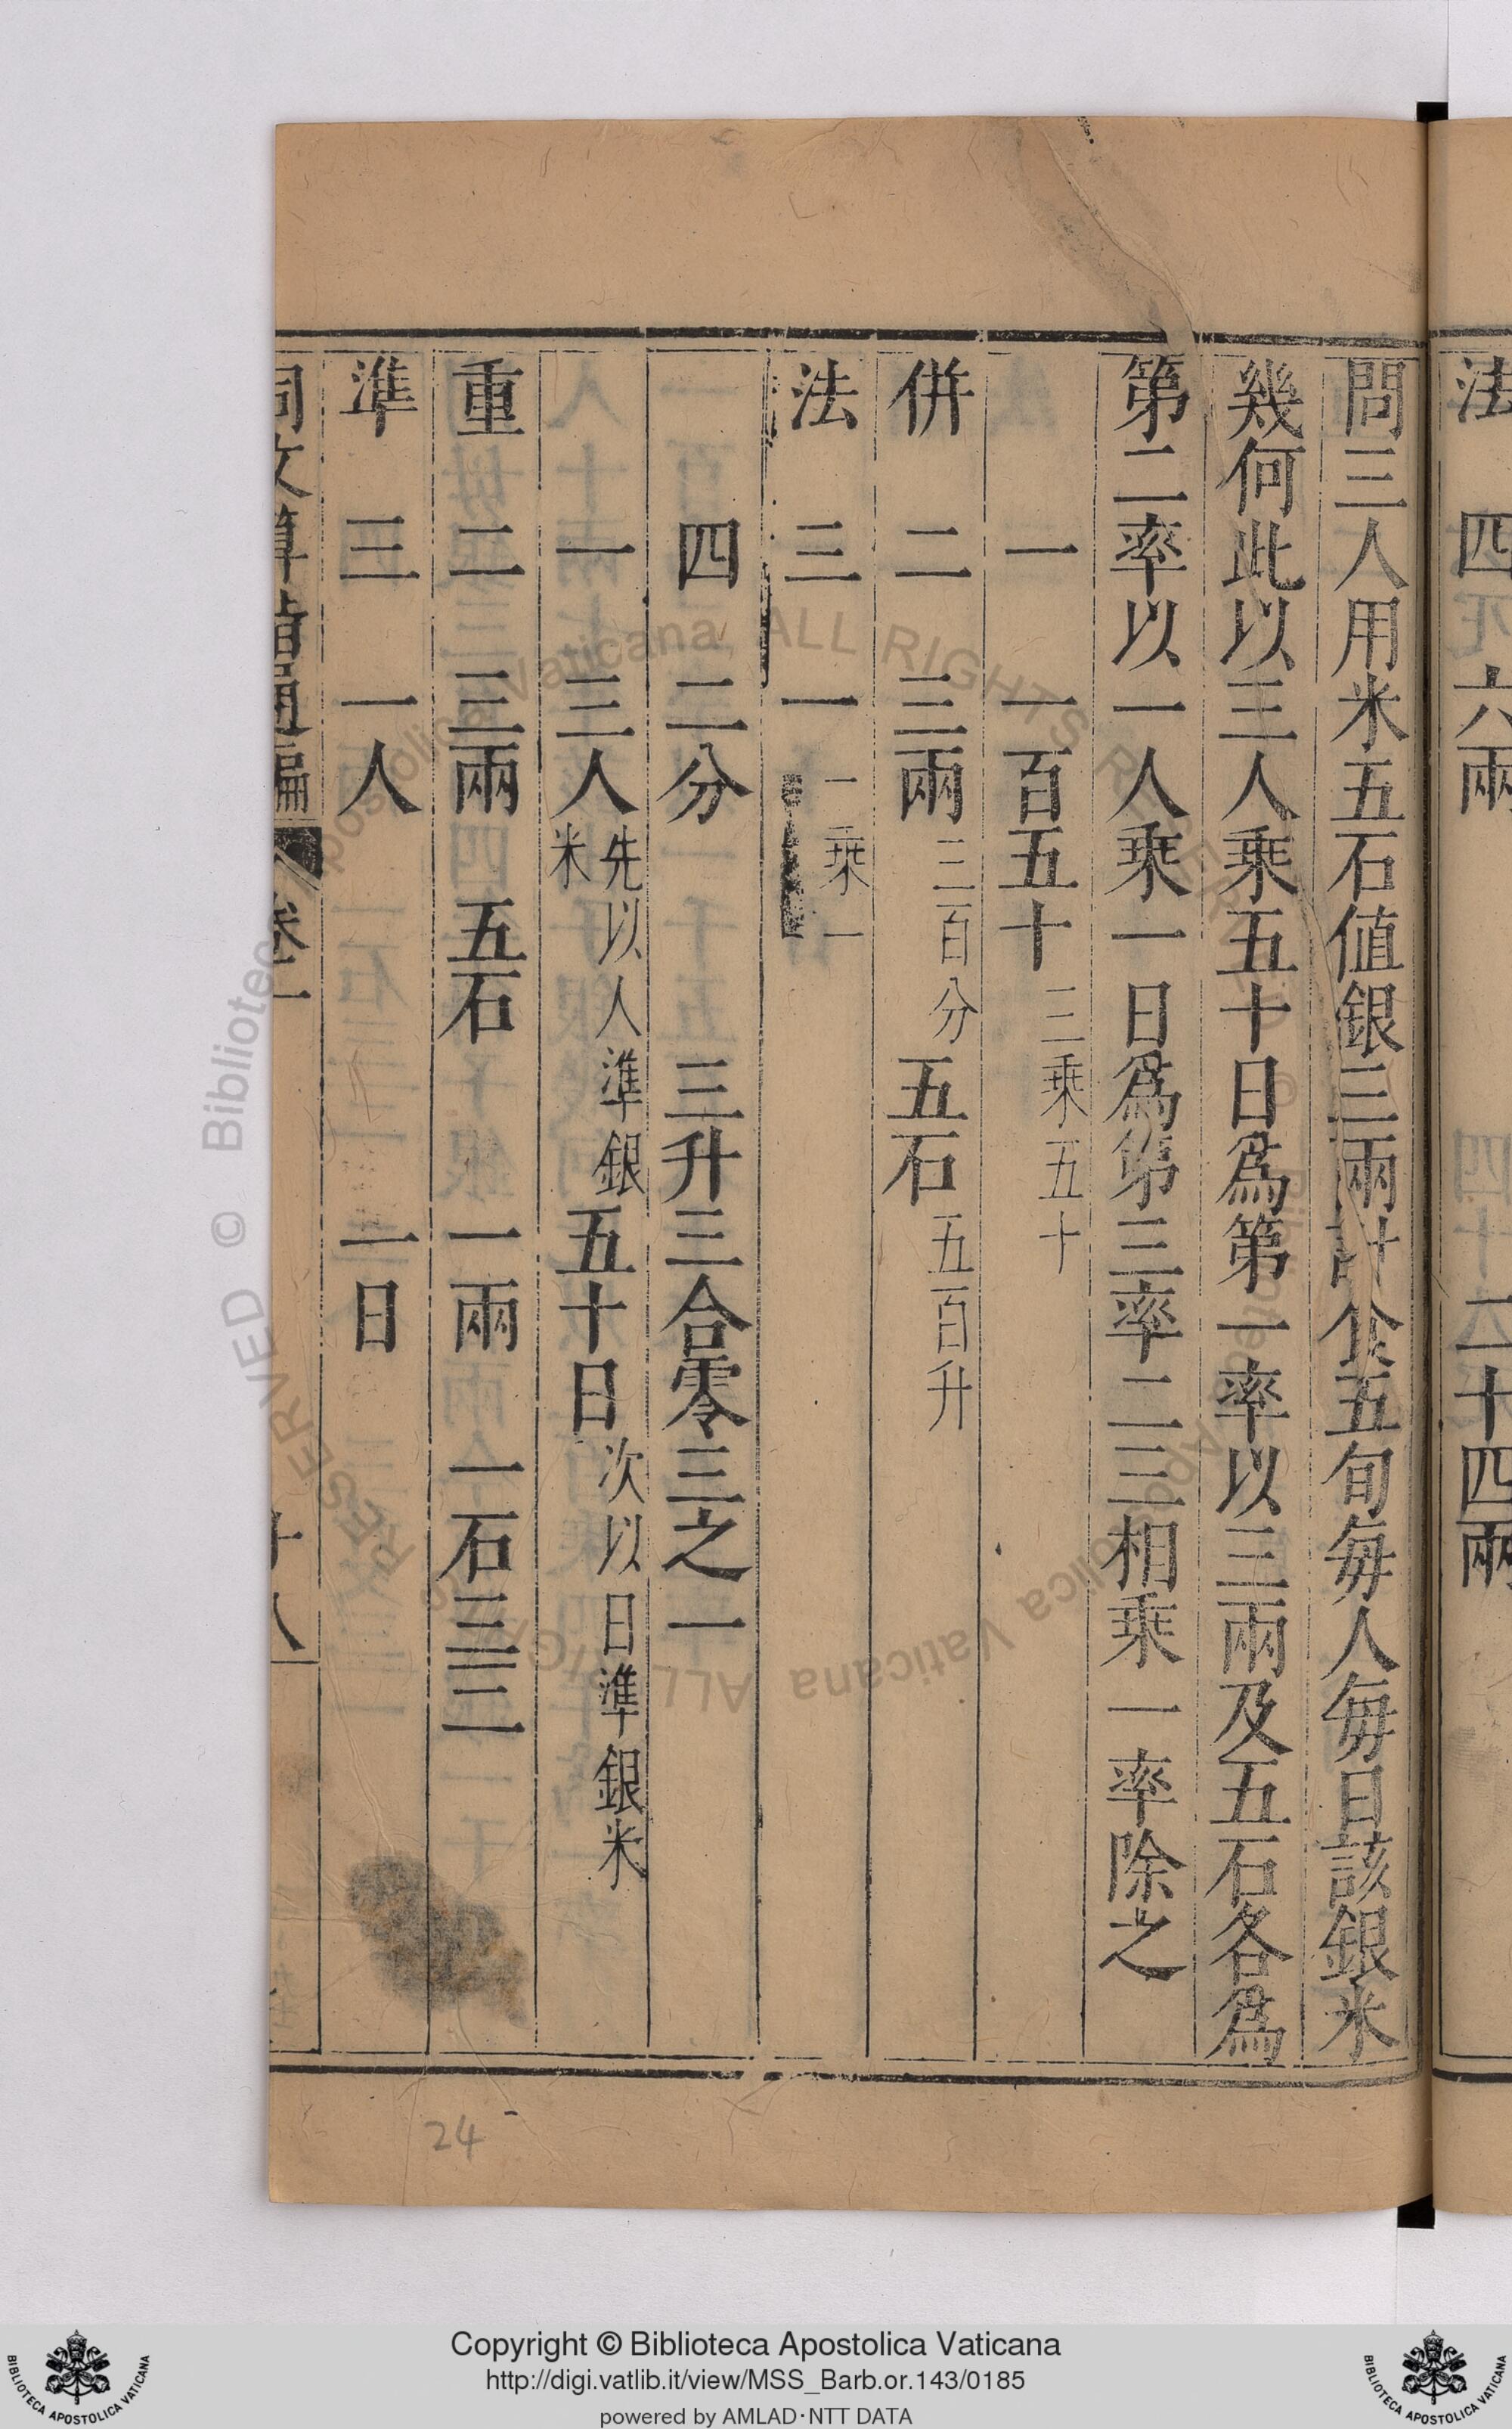 法　四　六兩　二十四兩
問三人用米五石值銀三兩計食五旬每人每日該銀米
幾何此以三人乘五十日爲第一率以三兩及五石各爲
第二率以一人乘一日爲第三率二三相乘一率除之
一　一百五十 三乘五十
併　二　三兩 三百分 五石 五百升
法　三　一 一乘一
四　二分　三升三合零三之一
一　三人 先以人準銀米 五十日 次以日準銀米
重　二　三兩　五石　一兩　一石三三二
準　三　一人　一日
同文算指通編 卷一 十八
24
Copyright © Biblioteca Apostolica Vaticana
http://digi.vatlib.it/view/MSS_Barb.or.143/0185
powered by AMLAD·NTT DATA
BIBLIOTECA APOSTOLICA VATICANA
BIBLIOTECA APOSTOLICA VATICANA
© Biblioteca Apostolica Vaticana ALL RIGHTS RESERVED © Biblioteca Apostolica Vaticana ALL RIGHTS RESERVED